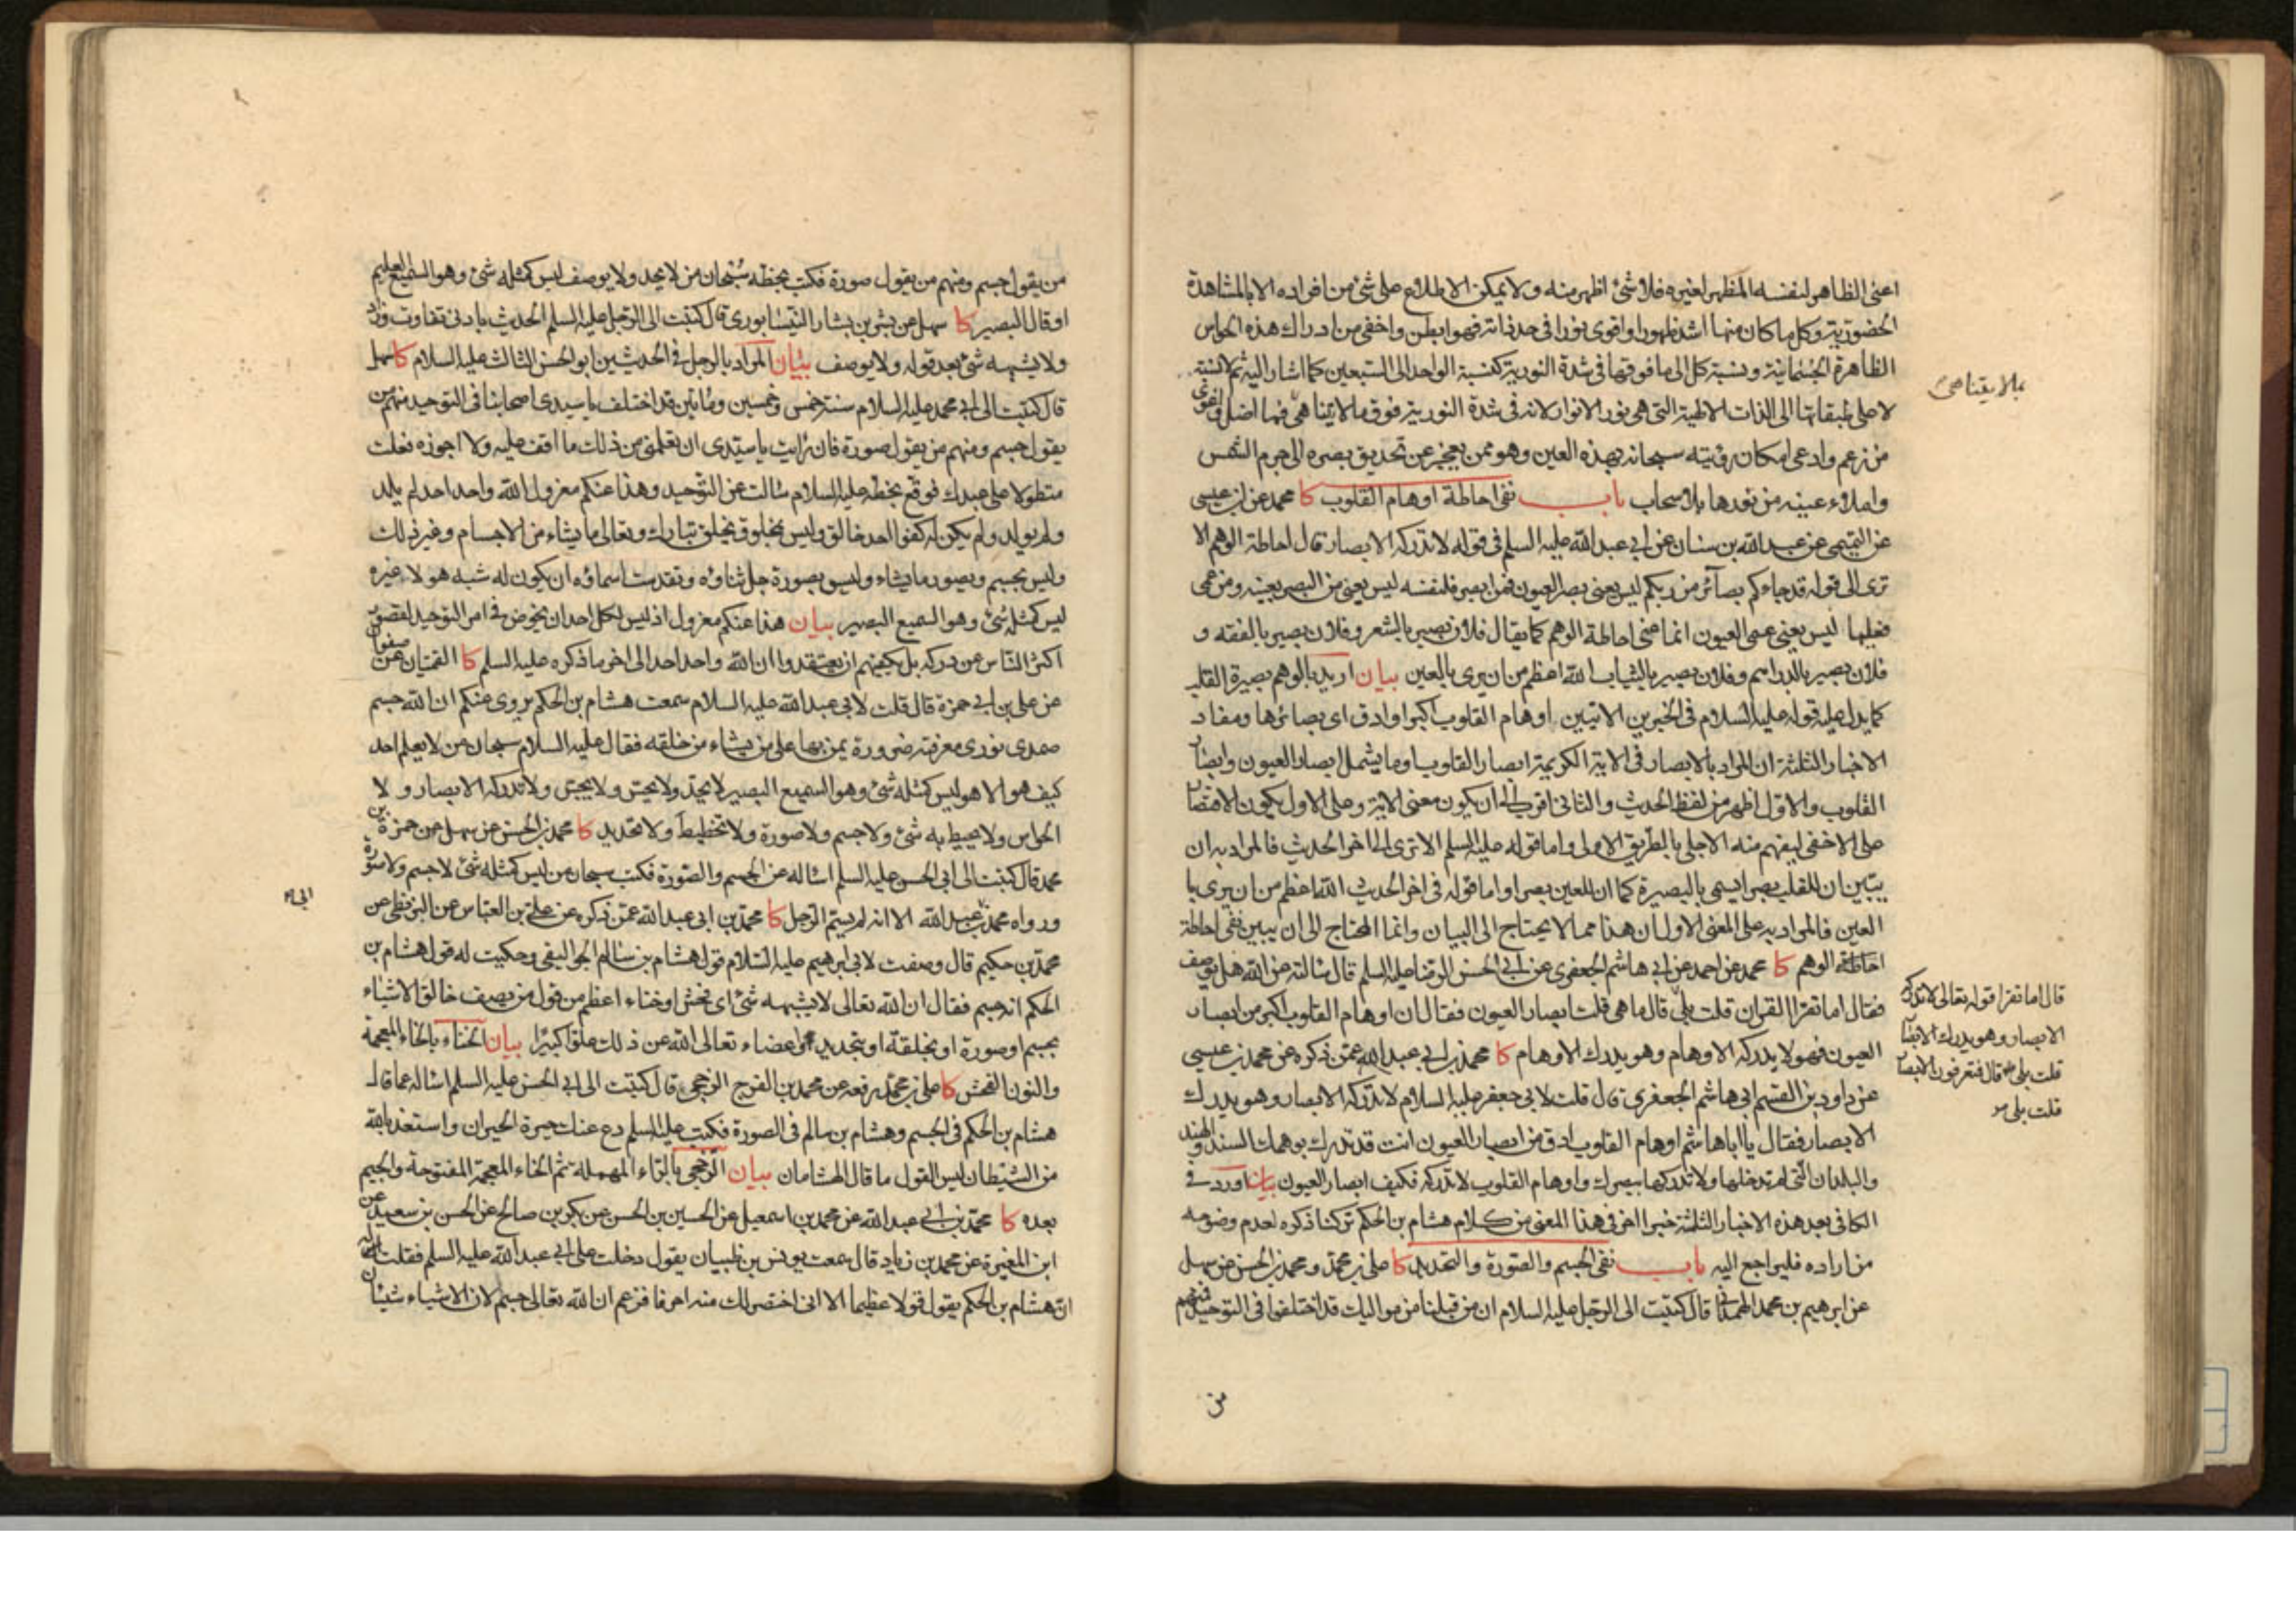 اعنى الظاهر لنفسه المظهر لغيره فلا شئ اظهر منه ولا يمكن الاطلاع على شئ من افراده الا بالمشاهدة
الحضورية وكل ما كان منها اشد ظهورا واقوى نورا فى حد ذاته فهو ابطن واخفى من ادراك هذه الحواس
الظاهرة الجسمانية ونسبة كل الى ما فوقها فى شدة النورية كنسبة الواحد الى السبعين كما اشار اليه ثم لا نسبة
بلا يتناهى
لاعلى طبقاتها الى الذات الالهية التى هى نور الانوار لانه فى شدة النورية فوق ما لا يتناهى فما اضل واغوى
من زعم وادعى امكان رؤيته سبحانه بهذه العين وهو ممن يعجز عن تحديق بصره الى جرم الشمس
واملاء عينيه من نورها بلا سحاب باب نفى احاطة اوهام القلوب كا محمد عن ابن عيسى
عن التميمى عن عبد الله بن سنان عن ابى عبد الله عليه السلم فى قوله لا تدركه الابصار قال احاطة الوهم الا
ترى الى قوله قد جاءكم بصآئر من ربكم ليس يعنى بصر العيون فمن ابصر فلنفسه ليس يعنى من البصر بعينه ومن عمى
فعليها ليس يعنى عمى العيون انما عنى احاطة الوهم كما يقال فلان بصير بالشعر وفلان بصير بالفقه و
فلان بصير بالدراهم وفلان بصير بالثياب الله اعظم من ان يرى بالعين بيان اريد بالوهم بصيرة القلب
كما يدل عليه قوله عليه السلام فى الخبرين الاتيين اوهام القلوب اكبر او ادق اى بصائرها ومفاد
الاخبار الثلثة ان المراد بالابصار فى الاية الكريمة ابصار القلوب او ما يشمل ابصار العيون وابصار
القلوب والاول اظهر من لفظ الحديث والثانى اقرب الى ان يكون معنى الاية وعلى الاول يكون الاقتصار
على الاخفى ليفهم منه الاجلى بالطريق الاولى واما قوله عليه السلم الا ترى الى اخر الحديث فالمراد به ان
يبين ان للقلب بصرا يسمى بالبصيرة كما ان للعين بصرا واما قوله فى اخر الحديث الله اعظم من ان يرى با
العين فالمراد به على المعنى الاول ان هذا مما لا يحتاج الى البيان وانما المحتاج الى ان يبين نفى احاطة
احاطة الوهم كا محمد عن احمد عن ابى هاشم الجعفرى عن ابى الحسن الرضا عليه السلم قال سالته عن الله هل يوصف
فقال اما تقرا القران قلت بلى قال ما هى قلت ابصار العيون فقال ان اوهام القلوب اكبر من ابصار
قال اما تقرا قوله تعالى لا تدركه
الابصار وهو يدرك الابصار
قلت بلى قال فتعرفون الابصار
قلت بلى
العيون فهو لا يدركه الاوهام وهو يدرك الاوهام كا محمد بن ابى عبد الله عمن ذكره عن محمد بن عيسى
عن داود بن القسم ابى هاشم الجعفرى قال قلت لابى جعفر عليه السلام لا تدركه الابصار وهو يدرك
الابصار فقال يا ابا هاشم اوهام القلوب ادق من ابصار العيون انت قد تدرك بوهمك السند والهند
والبلدان التى لم تدخلها ولا تدركها ببصرك واوهام القلوب لا تدركه فكيف ابصار العيون بيان اورد فى
الكافى بعد هذه الاخبار الثلثة خبرا اخر فى هذا المعنى من كلام هشام بن الحكم تركنا ذكره لعدم وضوحه
من اراده فليراجع اليه باب نفى الجسم والصورة والتحديد كا على بن محمد ومحمد بن الحسن عن سهل
عن ابرهيم بن محمد الهمدانى قال كتبت الى الرجل عليه السلام ان من قبلنا من مواليك قد اختلفوا فى التوحيد فمنهم
من
من يقول جسم ومنهم من يقول صورة فكتب بخطه سبحان من لا يحد ولا يوصف ليس كمثله شئ وهو السميع العليم
او قال البصير كا سهل عن بشر بن بشار النيسابورى قال كتبت الى الرجل عليه السلم الحديث بادنى تفاوت وزاد
ولا يشبهه شئ بعد قوله ولا يوصف بيان المراد بالرجل فى الحديثين ابو الحسن الثالث عليه السلام كا سهل
قال كتبت الى ابى محمد عليه السلام سنة خمس وخمسين ومأتين قد اختلف يا سيدى اصحابنا فى التوحيد منهم من
يقول جسم ومنهم من يقول صورة فان رايت يا سيدى ان تعلمنى من ذلك ما اقف عليه ولا اجوزه فعلت
متطولا على عبدك فوقع بخطه عليه السلام سالت عن التوحيد وهذا عنكم معزول الله واحد احد لم يلد
ولم يولد ولم يكن له كفوا احد خالق وليس بمخلوق يخلق تبارك وتعالى ما يشاء من الاجسام وغير ذلك
وليس بجسم ويصور ما يشاء وليس بصورة جل ثناؤه وتقدست اسماؤه ان يكون له شبه هو لا غيره
ليس كمثله شئ وهو السميع البصير بيان هذا عنكم معزول اذ ليس لكل احد ان يخوض فى امر التوحيد لقصور
اكثر الناس عن دركه بل يكفيهم ان يعتقدوا ان الله واحد احد الى اخر ما ذكره عليه السلم كا القميان عن صفوان
عن على بن ابى حمزة قال قلت لابى عبد الله عليه السلام سمعت هشام بن الحكم يروى عنكم ان الله جسم
صمدى نورى معرفته ضرورة يمن بها على من يشاء من خلقه فقال عليه السلام سبحان من لا يعلم احد
كيف هو الا هو ليس كمثله شئ وهو السميع البصير لا يحد ولا يحس ولا يجس ولا تدركه الابصار ولا
الحواس ولا يحيط به شئ ولا جسم ولا صورة ولا تخطيط ولا تحديد كا محمد بن الحسن عن سهل عن حمزة بن
محمد قال كتبت الى ابى الحسن عليه السلم اساله عن الجسم والصورة فكتب سبحان من ليس كمثله شئ لا جسم ولا صورة
ورواه محمد بن عبد الله الا انه لم يسم الرجل كا محمد بن ابى عبد الله عمن ذكره عن على بن العباس عن البزنطى عن
محمد بن حكيم قال وصفت لابى ابرهيم عليه السلام قول هشام بن سالم الجواليقى وحكيت له قول هشام بن
الحكم انه جسم فقال ان الله تعالى لا يشبهه شئ اى فحش او خناء اعظم من قول من يصف خالق الاشياء
بجسم او صورة او بخلقة او بتحديد او اعضاء تعالى الله عن ذلك علوا كبيرا بيان الخناء بالخاء المعجمة
والنون الفحش كا على بن محمد رفعه عن محمد بن الفرج الرخجى قال كتبت الى ابى الحسن عليه السلم اساله عما قال
هشام بن الحكم فى الجسم وهشام بن سالم فى الصورة فكتب عليه السلم دع عنك حيرة الحيران واستعذ بالله
من الشيطان ليس القول ما قال الهشامان بيان الرخجى بالراء المهملة ثم الخاء المعجمة المفتوحة والجيم
بعده كا محمد بن ابى عبد الله عن محمد بن اسمعيل عن الحسين بن الحسن عن بكر بن صالح عن الحسن بن سعيد عن
ابن المغيرة عن محمد بن زياد قال سمعت يونس بن ظبيان يقول دخلت على ابى عبد الله عليه السلم فقلت له
ان هشام بن الحكم يقول قولا عظيما الا انى اختصر لك منه احرفا فزعم ان الله تعالى جسم لان الاشياء شيئان